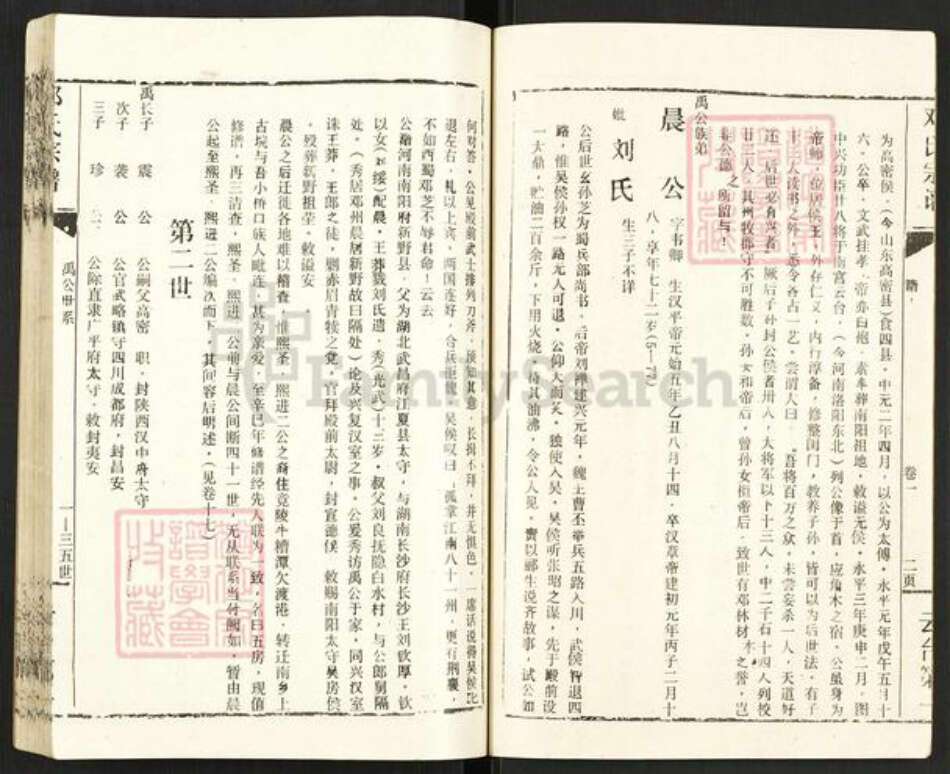 为高密侯．（今山东高密县）食四县．中元二年四月，以公为太傅．永平元年戊午五月十
六．公卒．文武挂孝．帝亦白袍．素车葬南阳祖地．敕谥元侯．永平三年庚申二月．图
中兴功臣廿八将于南宫云台．（今河南洛阳东北）列公像于首，应角木之宿．公虽身为
帝师．位居侯王．外存仁义．内行淳备，修整闺门．教养子孙，皆可以为后世法．有子
十三人读书之外．还令各占一艺．尝谓人曰．吾将百万之众，未尝妄杀一人，天道好
还．后世必有兴者．厥后子孙封公侯者卅八，大将军以下十三人，中二千石十四人列校
廿二人，其州牧郡守不可胜数．孙女和帝后，曾孙女桓帝后．致世有邓林材木之誉，岂
非公德之所留与！
禹公族弟
晨 公 字韦卿 生汉平帝元始五年乙丑八月十四．卒汉章帝建初元年丙子二月十
八．享年七十二岁(5—77)
妣 刘 氏 生三子不详
公后世玄孙芝为蜀兵部尚书．后帝刘禅建兴元年．魏主曹丕举兵五路入川，武侯智退四
路．惟吴侯孙权一路无人可退．公仰天而笑．独使入吴．吴侯听张昭之谋，先于殿前设
一大鼎．贮油二百余斤，下用火烧．待其油沸，令公入见．责以郦生说齐故事，试公如
何对答．公见殿前武士排列刀斧．须知其意．长揖不拜．并无惧色．一席话说得吴侯叱
退左右．礼以上宾．两国连好，合兵拒魏．吴侯叹曰．孤掌江南八十一州．更有荆襄．
不如西蜀邓芝不辱君命！云云
公籍河南南阳府新野县．父为湖北武昌府江夏县太守．与湖南长沙府长沙王刘钦厚．钦
以女（刘绥）配晨．王莽戮刘氏遗．秀（光武）十三岁．叔父刘良抚隐白水村，与公郎舅隔
处．（秀居邓州晨居新野故曰隔处）论及兴复汉室之事．公爰秀访禹公于家．同兴汉室
诛王莽．王郎之徒，剿赤眉青犊之党．官拜殿前太尉，封宣德侯 敕赐南阳太守吴房侯
．殁葬新野祖茔．敕谥安
晨公之后迁徙各地难以稽查．惟熙圣．熙进二公之裔住竟陵牛糟潭欠渡港．转迁南乡上
古垸与吾小桥口族人毗连．甚为亲爱．至辛巳年修谱经先人联为一致．名曰五房．现值
修谱．再三清查．熙圣．熙进．公前与晨公间断四十一世，无从联系当付阙如．暂由晨
公起至熙圣．熙进二公编次而下．其间容后明述．（见卷十七）
第二世
禹长子 震 公 公嗣父高密 职．封陕西汉中府太守
次子 袭 公 公官武略镇守四川成都府，封昌安
三子 珍 公 公除直隶广平府太守．敕封夷安
禹公世系
一—三五世
卷一
二页
FamilySearch